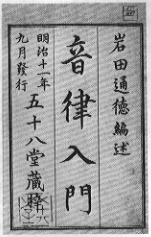 岩田通德編述
音律入門
明治十一年
九月發行
五十八堂藏